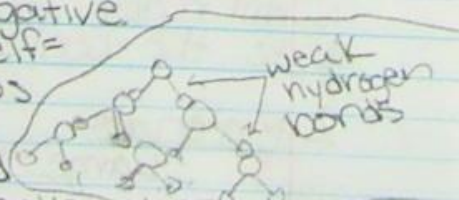 gative
elf=
s
weak
hydrogen
bonds